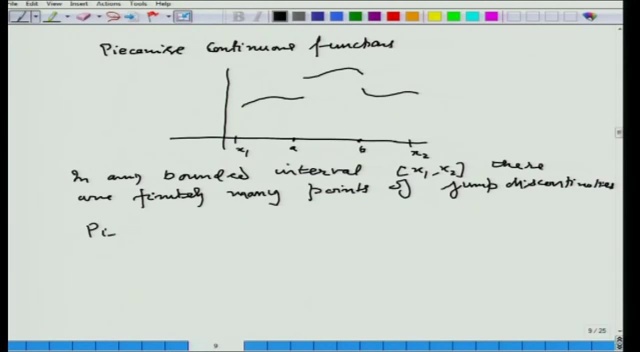 File View Insert Actions Tools Help
Piecewise Continuous functions
x1 a b x2
In any bounded interval [x1, x2] there
are finitely many points of jump discontinuities
Pi
9 / 25
9